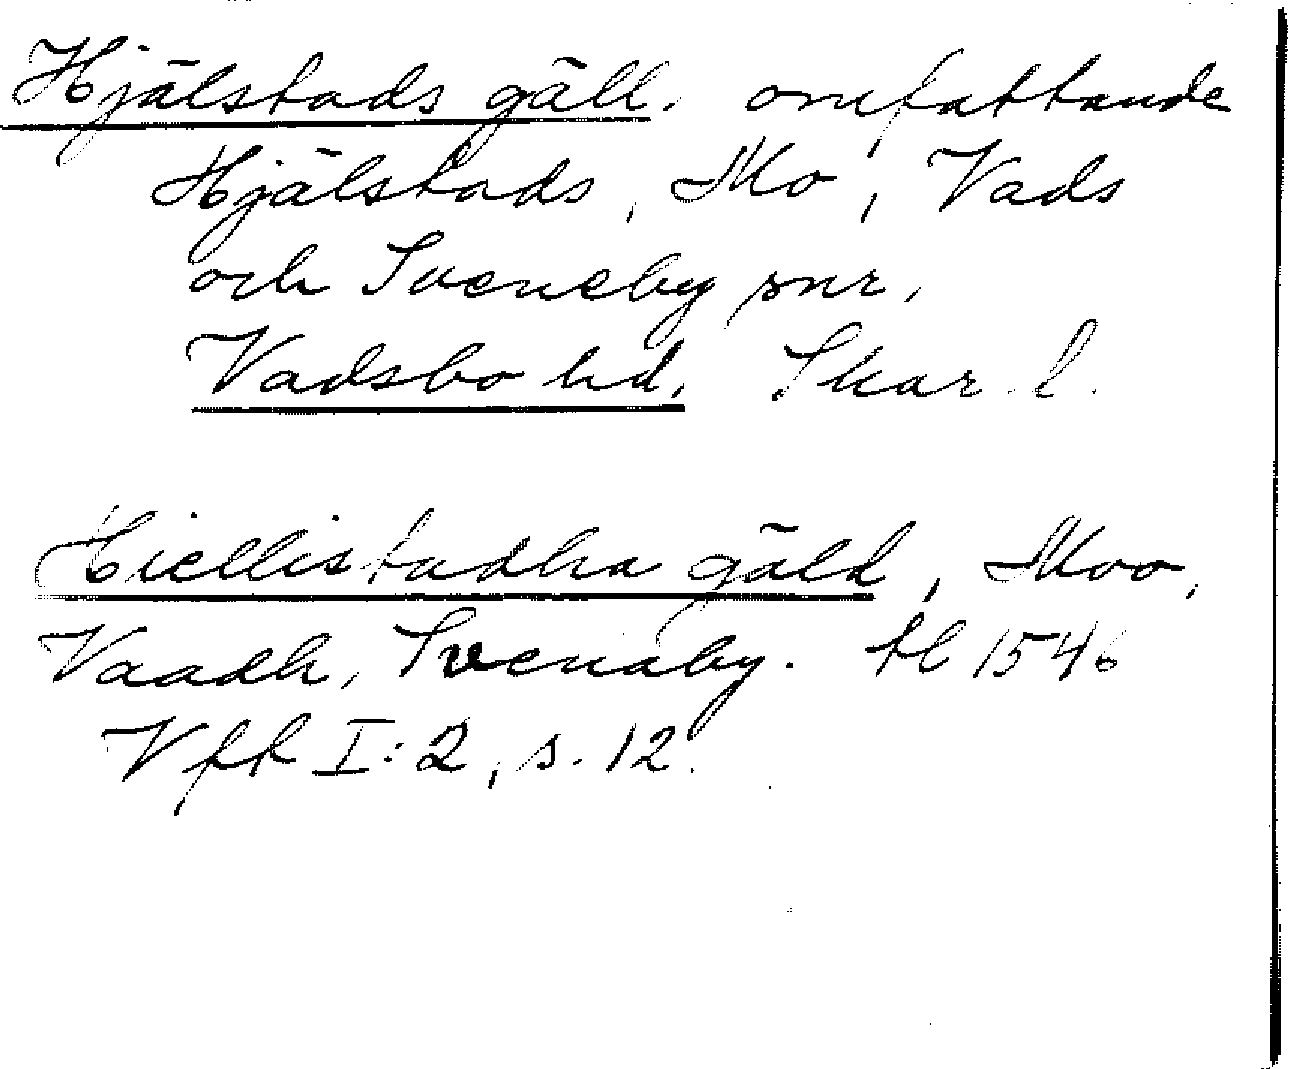 Hjälstads gäll. omfattande
Hjälstads, Mo, Vads
och Sveneby snr,
Vadsbo hd. Skar. l.
Hiellistadha gäld, Moo,
Vaadh, Svenaby. tl 1546
Vffr I:2, s. 12.